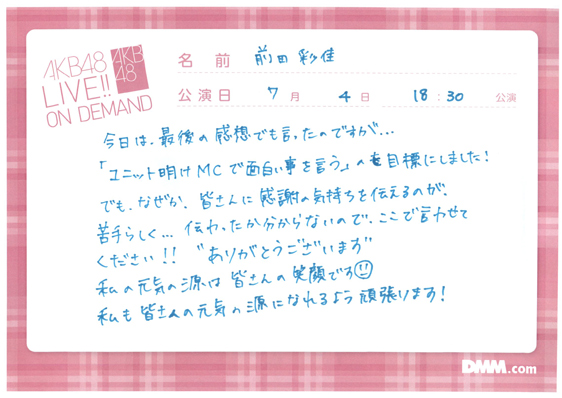 AKB48
LIVE!!
ON DEMAND
AKB
48
名 前 前田 彩佳
公演日 7月 4日 18:30 公演
今日は、最後の感想でも言ったのですが…
「ユニット明けMCで面白い事を言う」のを目標にしました!
でも、なぜか、皆さんに感謝の気持ちを伝えるのが、
苦手らしく… 伝わったか分からないので、ここで言わせて
ください!! "ありがとうございます"
私の元気の源は皆さんの笑顔です☺
私も皆さんの元気の源になれるよう頑張ります!
DMM.com